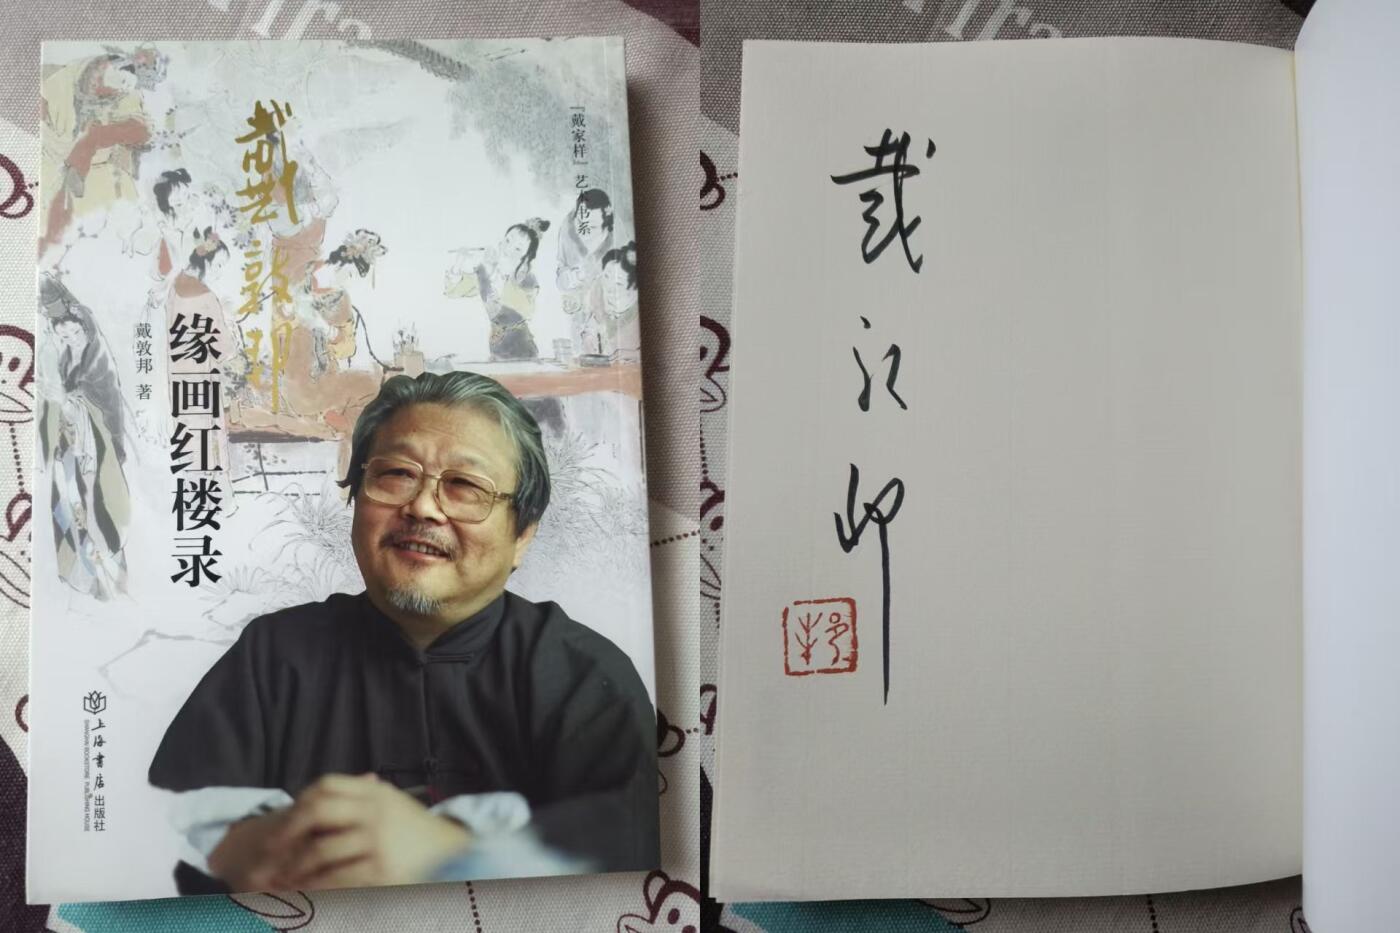 『戴家样』艺术书系
戴敦邦
缘画红楼录
戴敦邦 著
上海书店出版社
SHANGHAI BOOKSTORE PUBLISHING HOUSE
戴敦邦